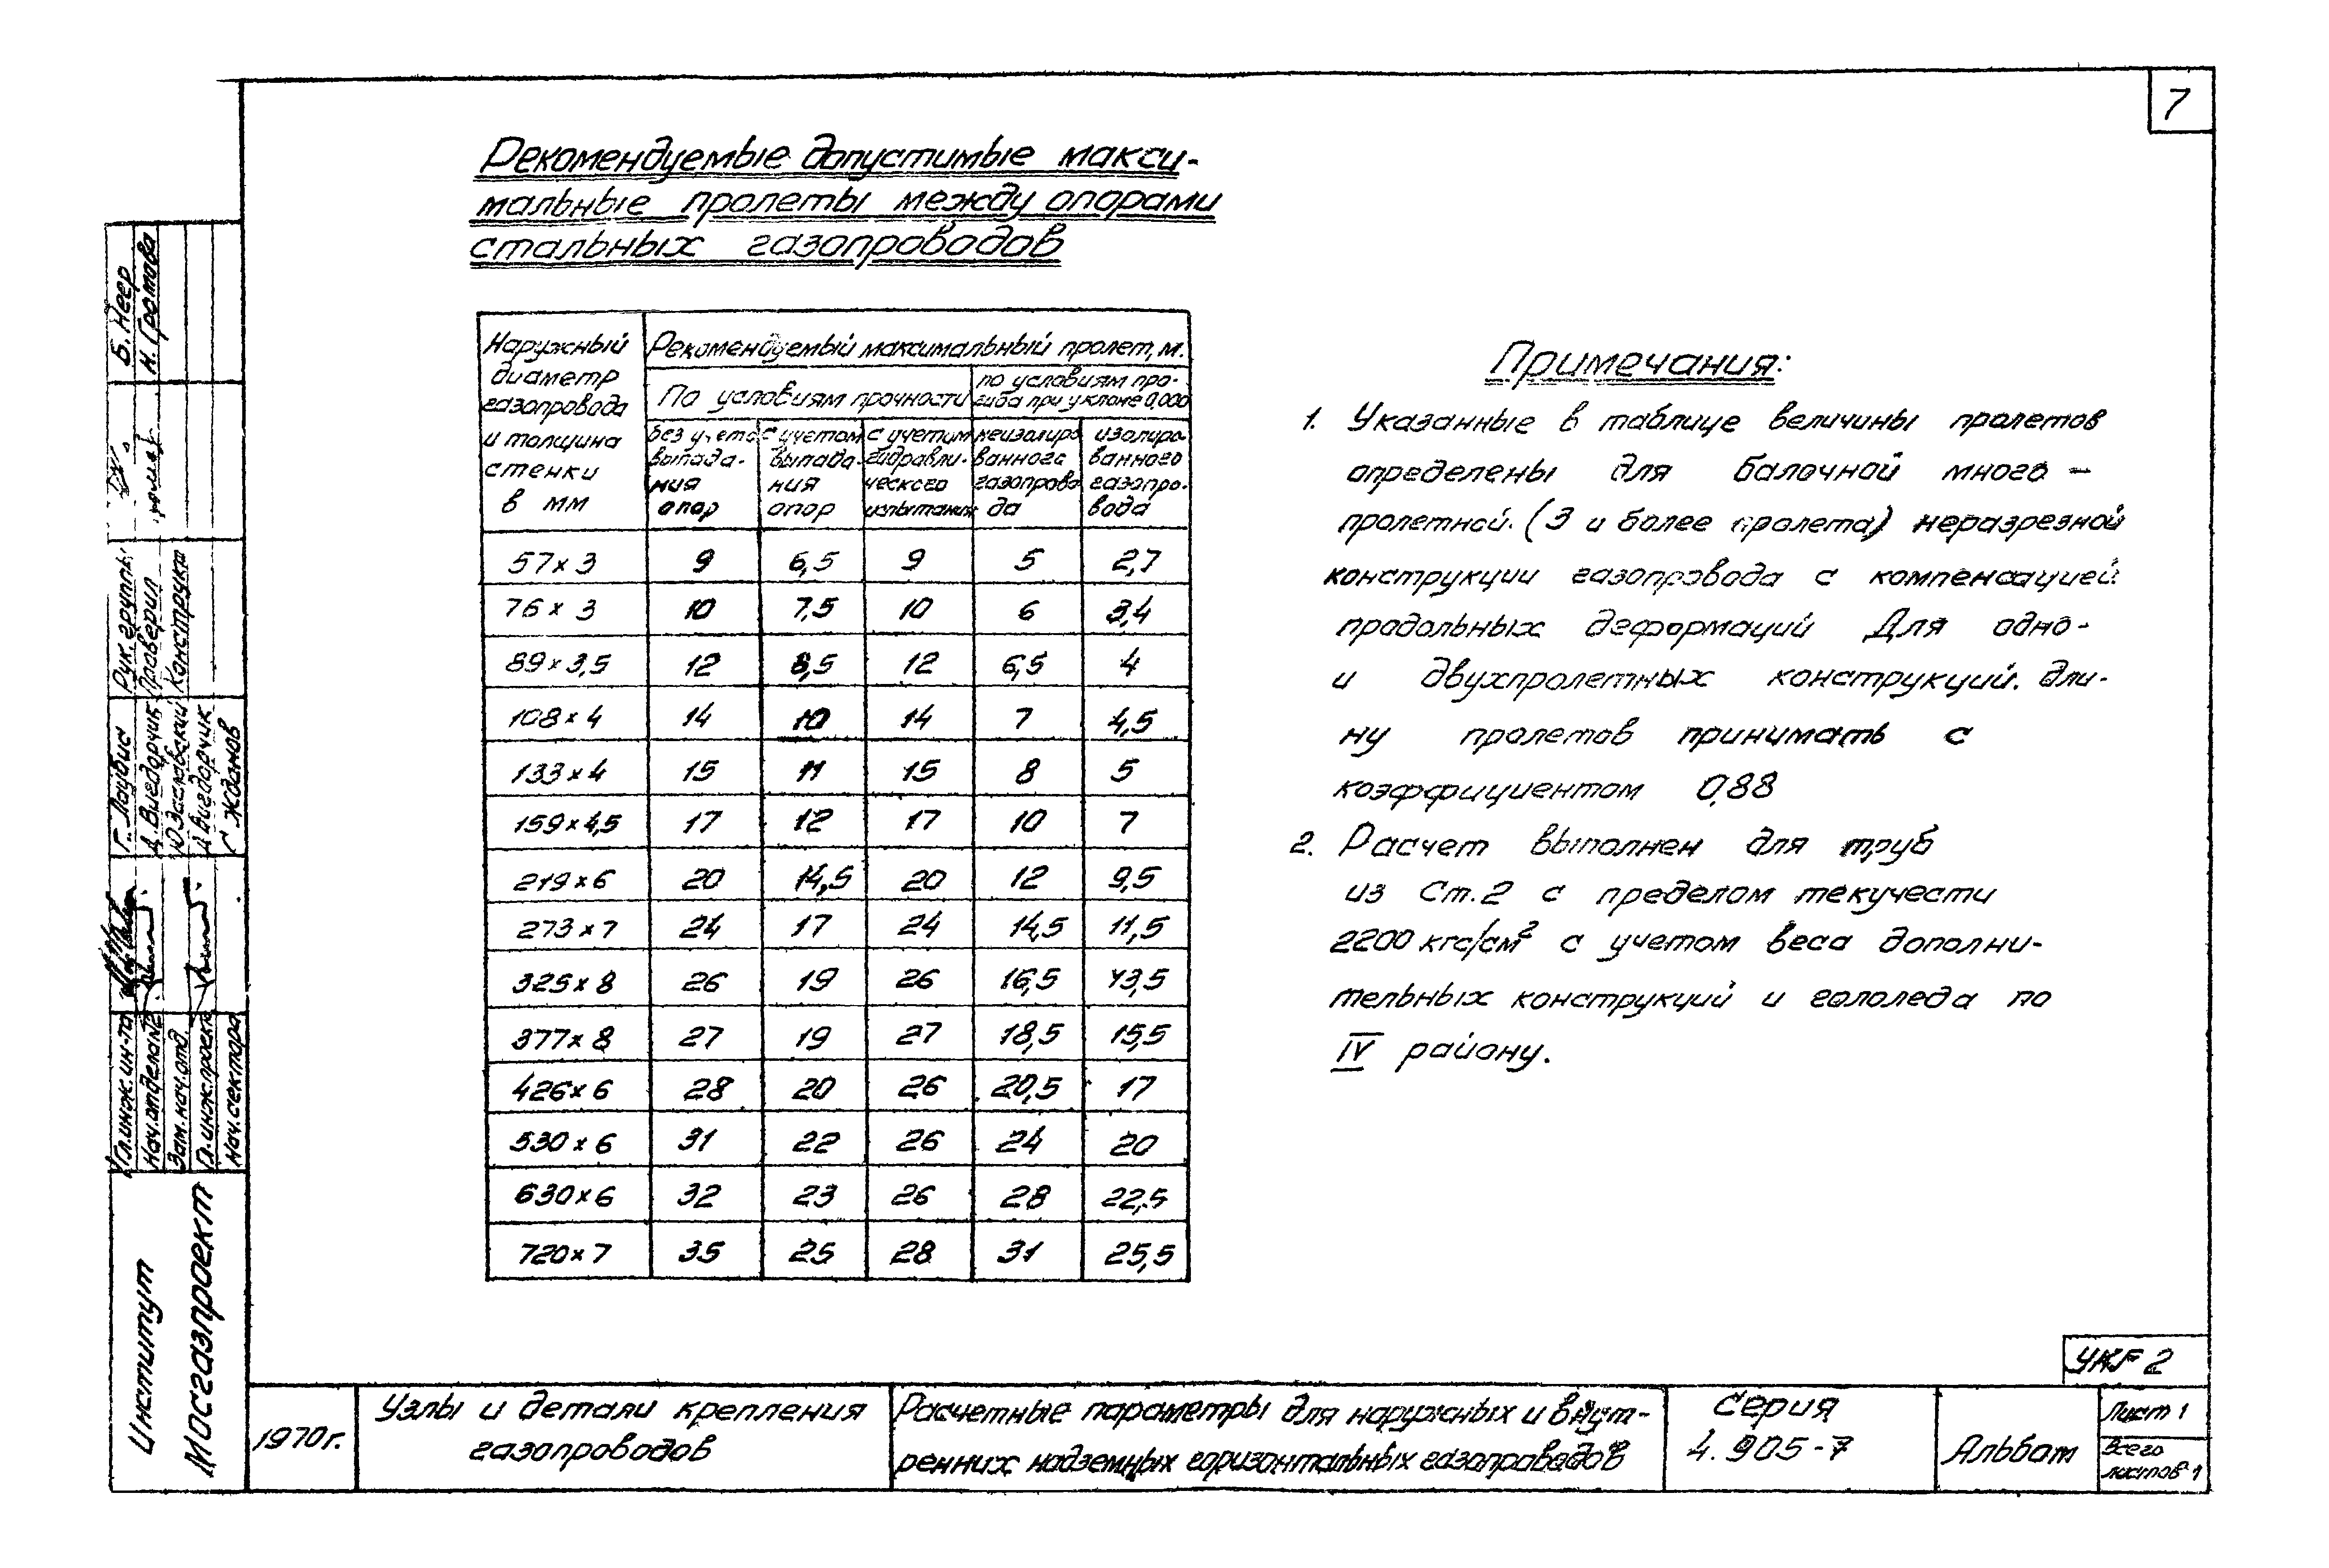 7
Рекомендуемые допустимые макси-
мальные пролеты между опорами
стальных газопроводов
Наружный диаметр газопровода и толщина стенки в мм
Рекомендуемый максимальный пролет, м.
По условиям прочности
по условиям про-
гиба при уклоне 0,000
без учета выпада-ния опор
с учетом выпада-ния опор
с учетом гидравли-ческого испытания
неизолиро ванного газопрово да
изолиро ванного газопро-вода
57 х 3 9 6,5 9 5 2,7
76 х 3 10 7,5 10 6 3,4
89 х 3,5 12 8,5 12 6,5 4
108 х 4 14 10 14 7 4,5
133 х 4 15 11 15 8 5
159 х 4,5 17 12 17 10 7
219 х 6 20 14,5 20 12 9,5
273 х 7 24 17 24 14,5 11,5
325 х 8 26 19 26 16,5 13,5
377 х 8 27 19 27 18,5 15,5
426 х 6 28 20 26 20,5 17
530 х 6 31 22 26 24 20
630 х 6 32 23 26 28 22,5
720 х 7 35 25 28 31 25,5
Примечания:
1. Указанные в таблице величины пролетов
определены для балочной много-
пролетной (3 и более пролета) неразрезной
конструкции газопровода с компенсацией
продольных деформаций Для одно-
и двухпролетных конструкций. дли-
ну пролетов принимать с
коэффициентом 0,88
2. Расчет выполнен для труб
из Ст.2 с пределом текучести
2200 кгс/см² с учетом веса дополни-
тельных конструкций и гололеда по
IV району.
Б. Неер
Н. Громова
Рук. группы
Проверил
Конструкт
Г. Лаубис
Д. Вигдорчик
Ю Заславский
Д Вигдорчик
С Жданов
Гл.инж.ин-та
Нач.отдела №2
Зам.нач.отд.
Гл.инж.проект
Нач.сектора
Институт
Мосгазпроект
УКГ 2
1970г.
Узлы и детали крепления
газопроводов
Расчетные параметры для наружных и внут-
ренних надземных горизонтальных газопроводов
Серия
4.905-7
Альбом
Лист 1
Всего
листов 1